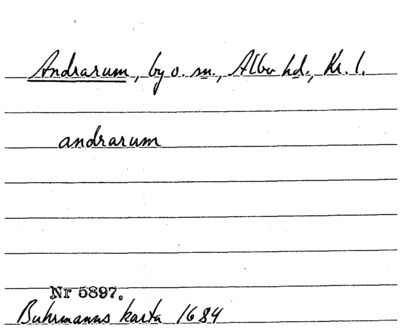 Andrarum, by o. sn., Albo hd., Kr. l.
andrarum
Nr 5897.
Buhrmanns karta 1684